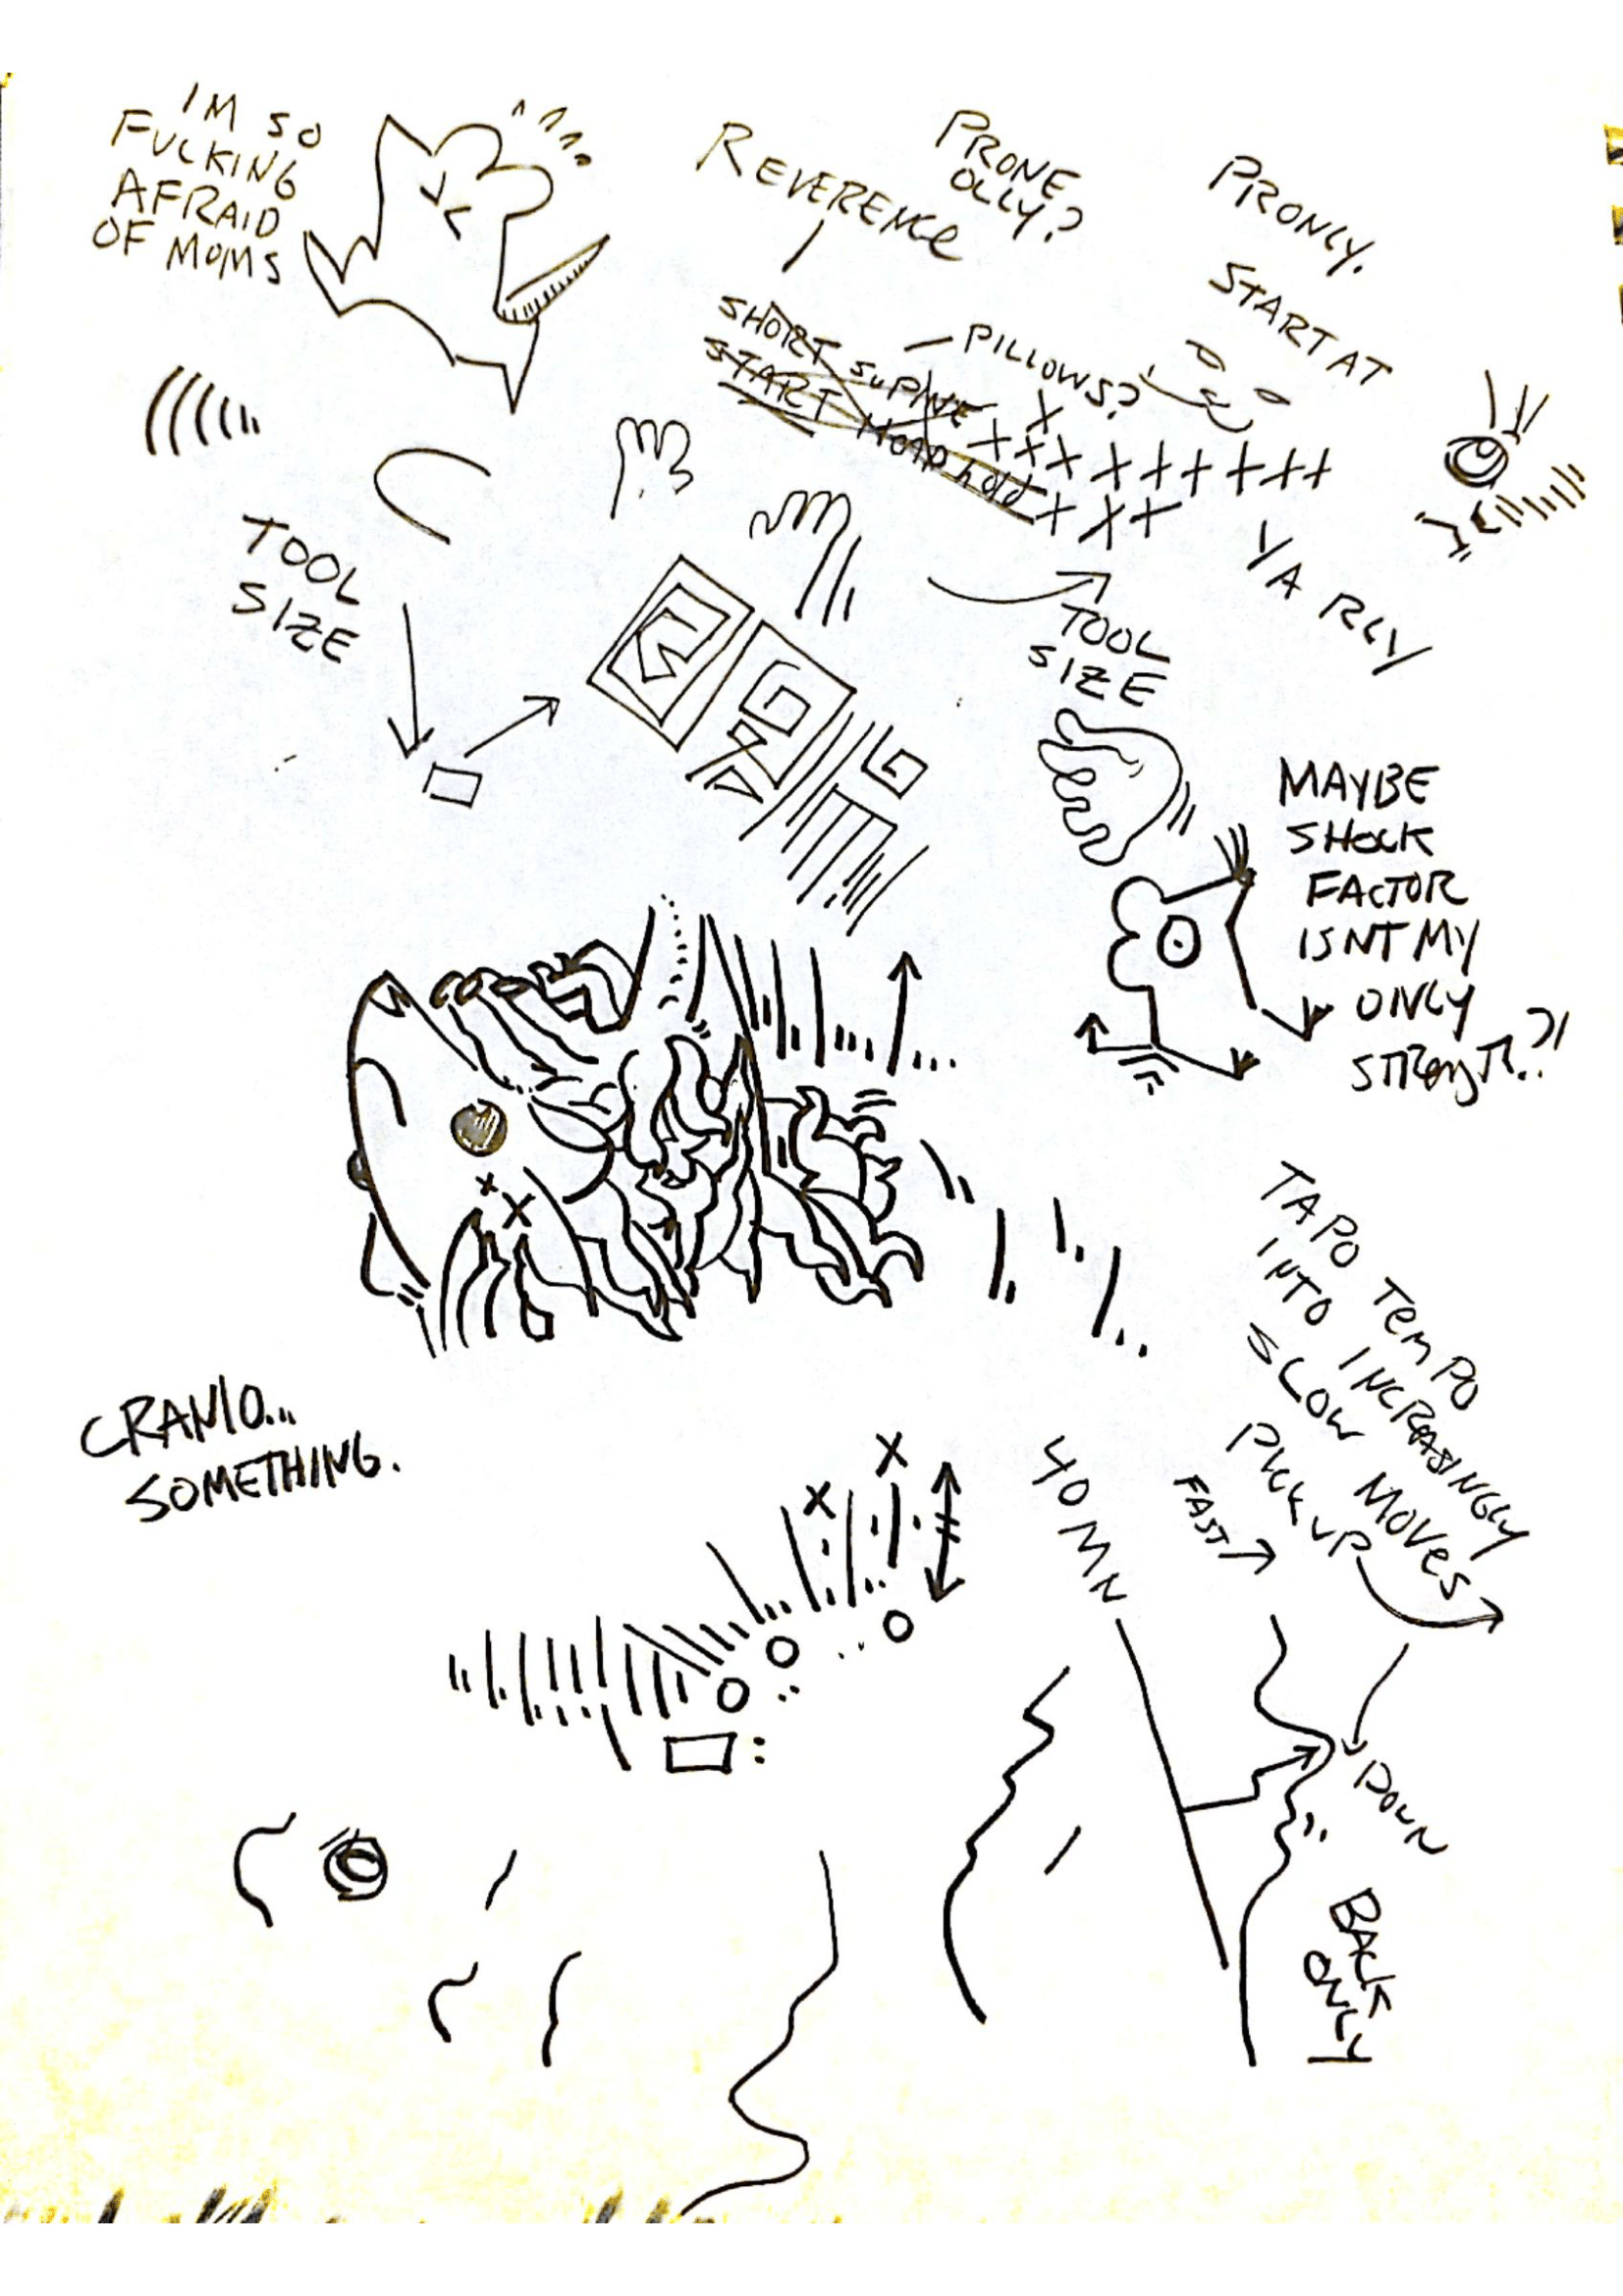 IM SO
FUCKING
AFRAID
OF MOMS
REVERENCE
PRONE
OLLY?
PRONLY.
START AT
SHORT SUPINE
START HEAD hold
- PILLOWS?
X
+XX XXX+++
+ X+
YA RLY
TOOL
SIZE
TOOL
SIZE
MAYBE
SHOCK
FACTOR
ISNT MY
ONLY
STRENGTH..?!
CRANIO...
SOMETHING.
TAPO TEMPO
INTO INCREASINGLY
SLOW MOVES
PICK UP
FAST
40 MN
X X
DOWN
BACK
ONLY